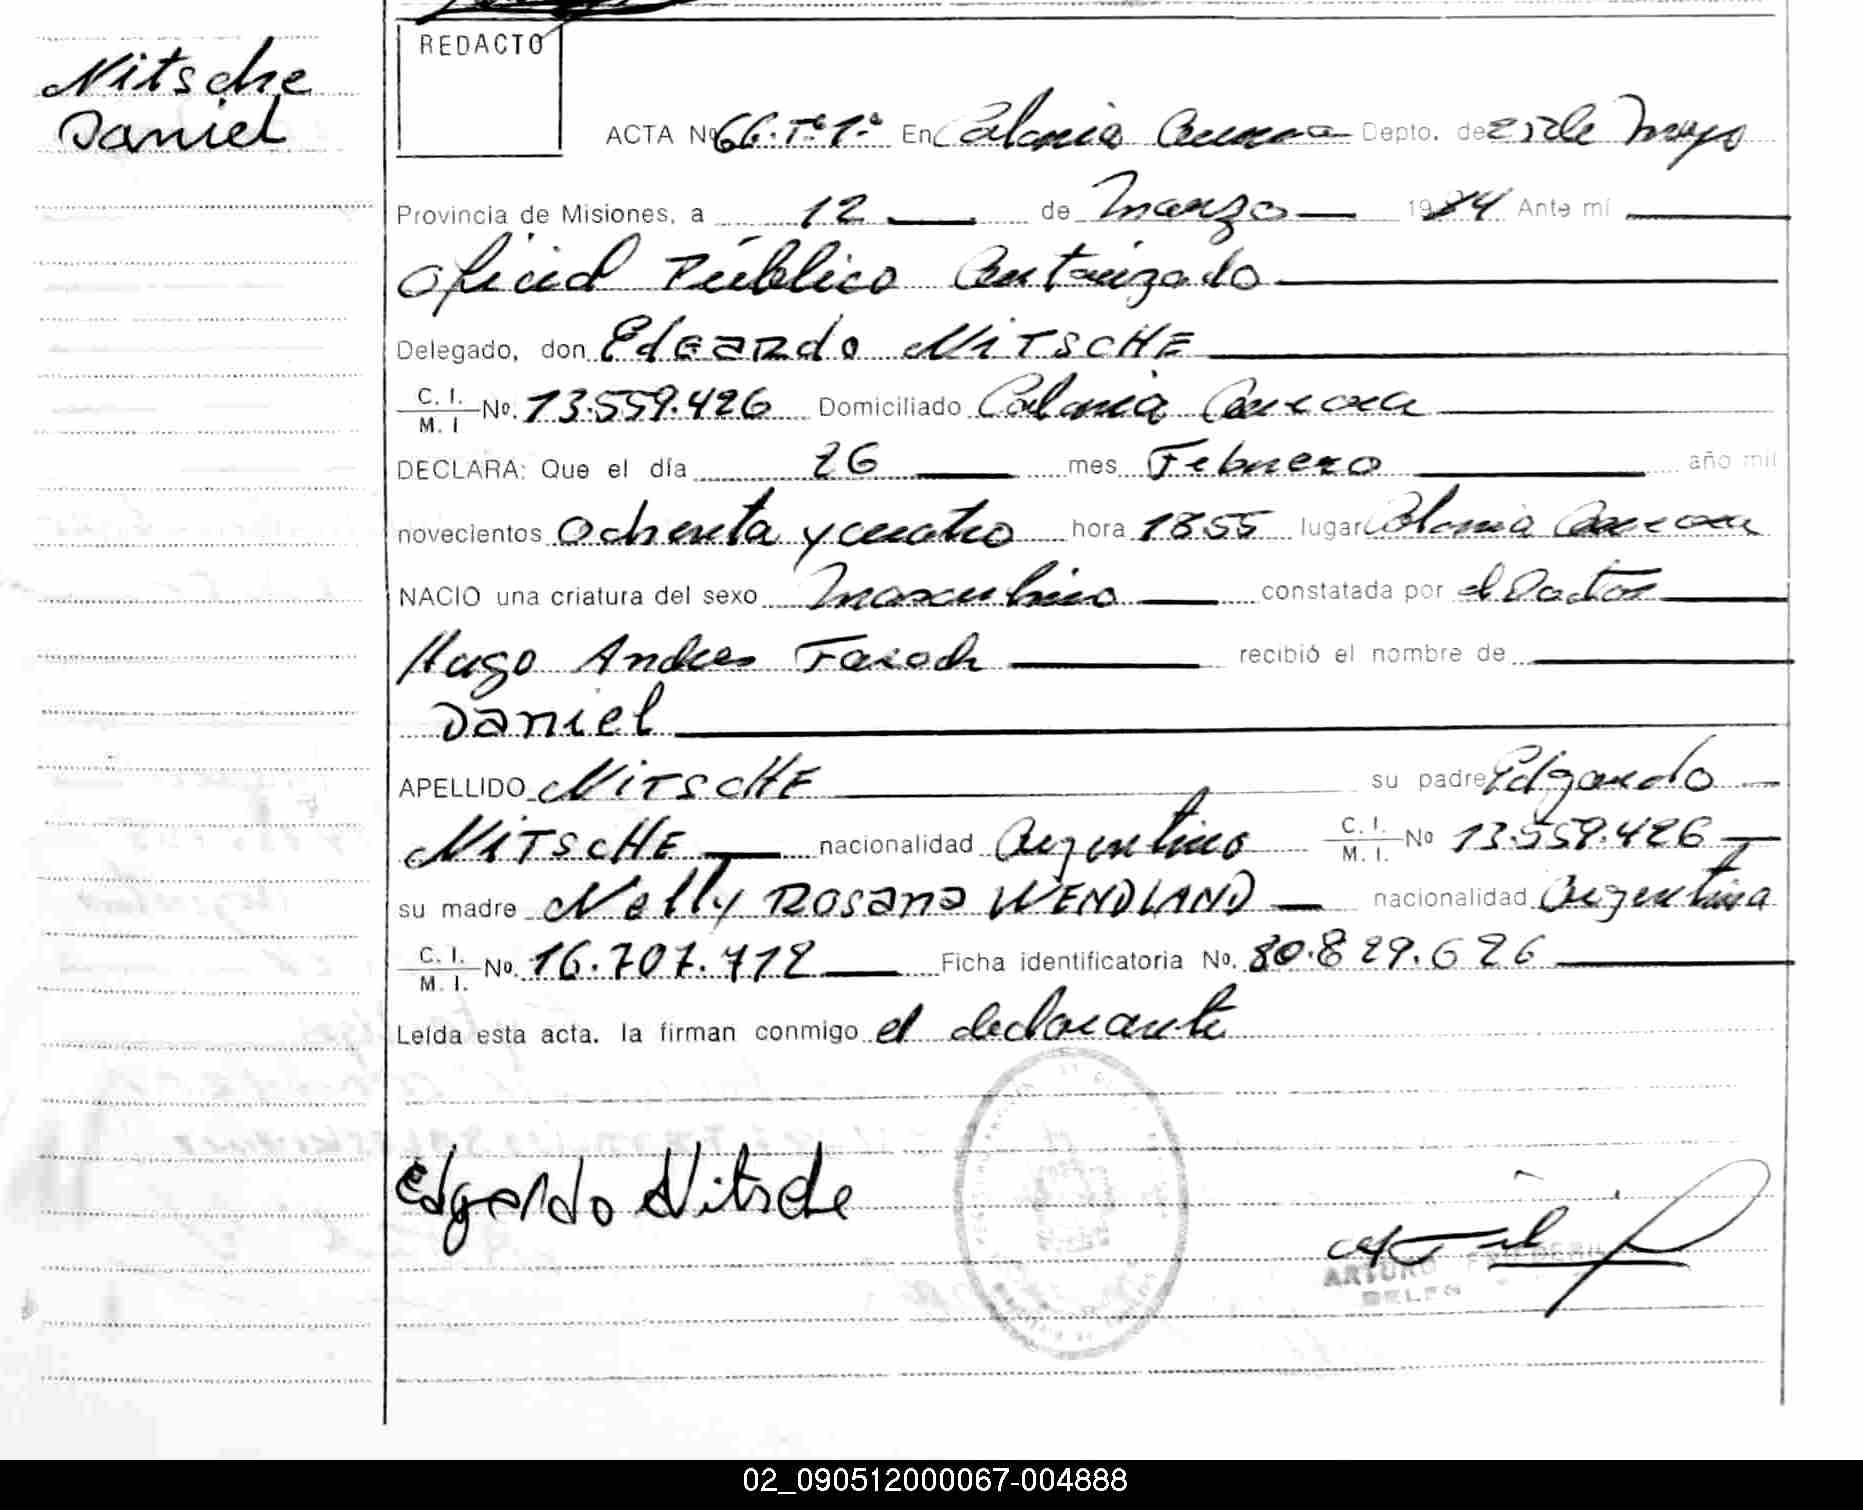 Nitsche
Daniel
REDACTO
ACTA Nº 66. Tº 1º En Colonia Aurora Depto. de 25 de Mayo
Provincia de Misiones, a 12 de Marzo 1984 Ante mí
Oficial Público Autorizado
Delegado, don Edgardo NITSCHE
C. I. M. I Nº. 13.559.426 Domiciliado Colonia Aurora
DECLARA: Que el día 26 mes Febrero año mil
novecientos Ochenta y cuatro hora 1855 lugar Colonia Aurora
NACIO una criatura del sexo Masculino constatada por el Doctor
Hugo Andres recibió el nombre de
Daniel
APELLIDO NITSCHE su padre Edgardo
NITSCHE nacionalidad Argentino C. I. M. I. Nº 13.559.426
su madre Nelly Rosana WENDLAND nacionalidad Argentina
C. I. M. I. Nº. 16.707.712 Ficha identificatoria No. 30.829.626
Leída esta acta. la firman conmigo el declarante
Edgardo Nitsche
ARTURO
02_090512000067-004888